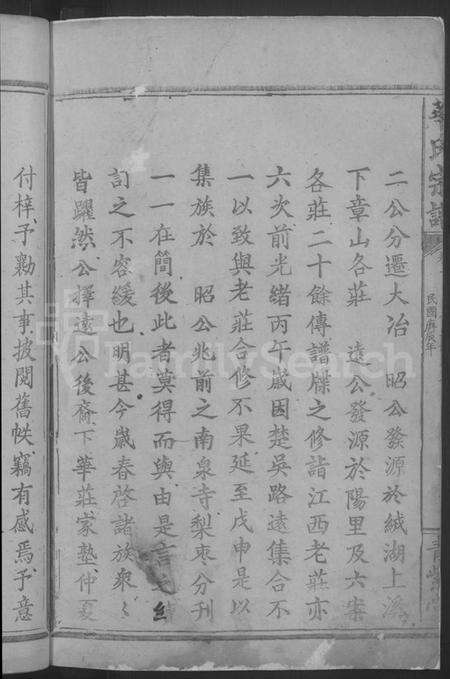 華氏宗譜
民國庚辰年
二公分遷大冶 昭公發源於緘湖上馮
下章山各莊 遠公發源於陽里及六案
各莊二十餘傳譜牒之修詣江西老莊亦
六次前光緒丙午歲因楚吳路遠集合不
一以致與老莊合修不果延至戊申是以
集族於 昭公兆前之南泉寺梨棗分刊
一一在簡後此者莫得而與由是言之
訂之不容緩也明甚今歲春啓諸族衆
皆躍然公擇遠公後裔下華莊家塾仲夏
付梓予勷其事披閱舊帙竊有感焉予意
FamilySearch